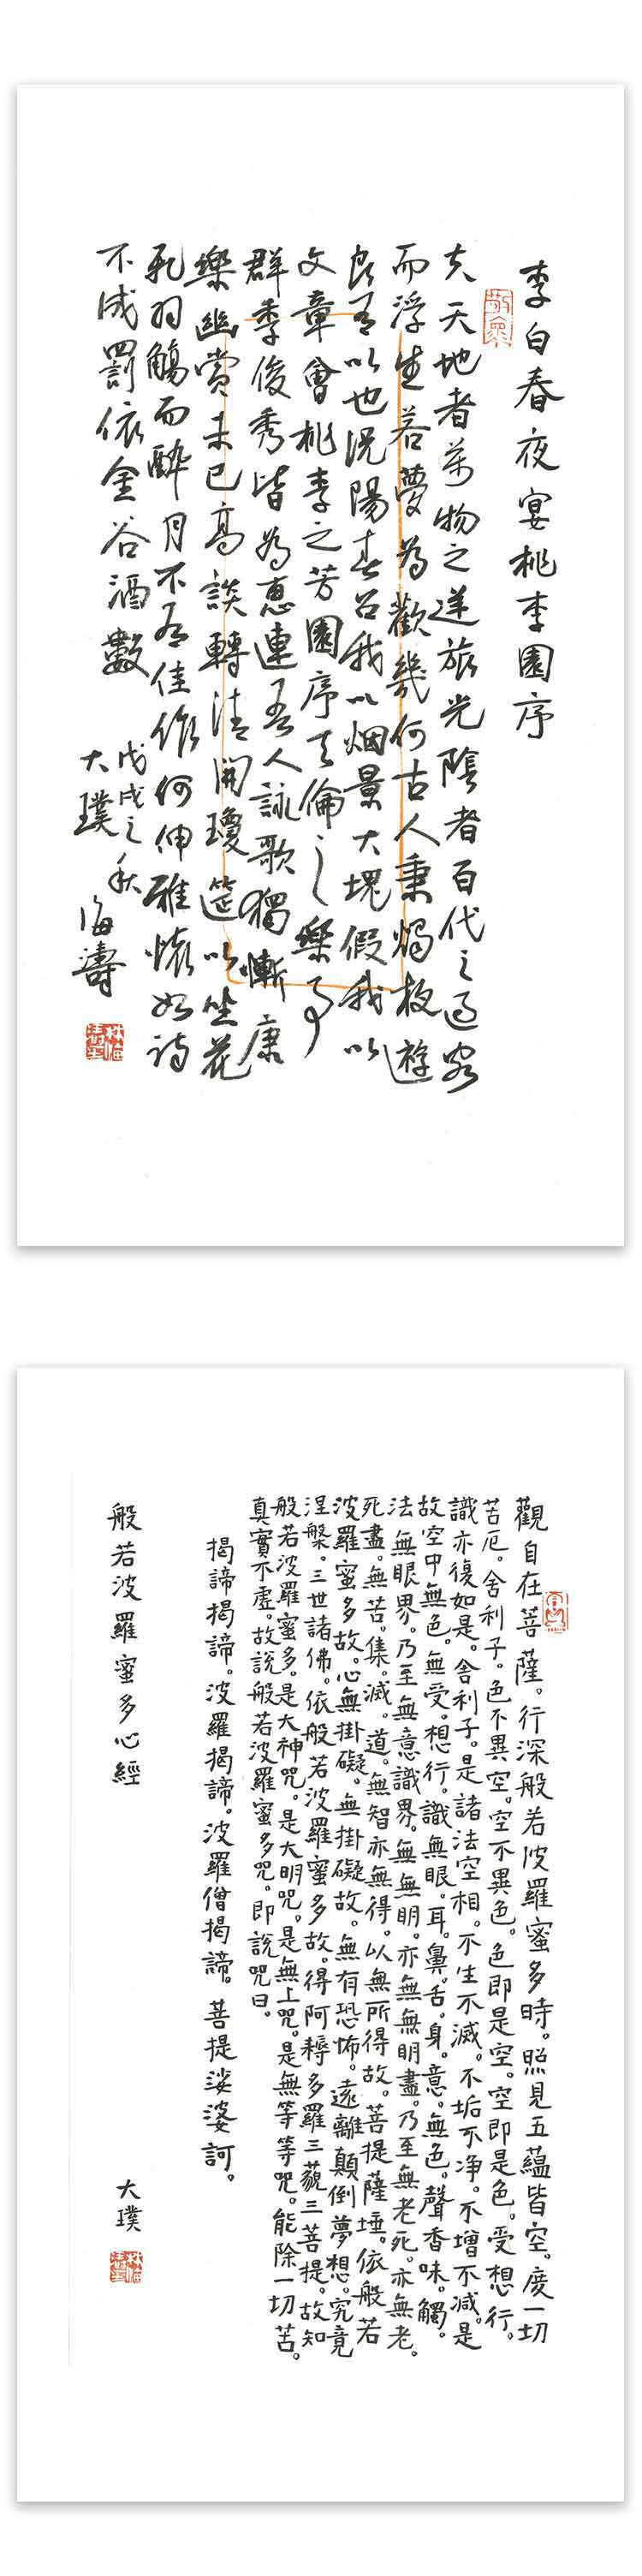 李白春夜宴桃李園序
夫天地者萬物之逆旅光陰者百代之過客
而浮生若夢為歡幾何古人秉燭夜遊
良有以也況陽春召我以烟景大塊假我以
文章會桃李之芳園序天倫之樂事
群季俊秀皆為惠連吾人詠歌獨慚康
樂幽賞未已高談轉清開瓊筵以坐花
飛羽觴而醉月不有佳作何伸雅懷如詩
不成罰依金谷酒數
戊戌之秋
大璞 海濤
觀自在菩薩。行深般若波羅蜜多時。照見五蘊皆空。度一切
苦厄。舍利子。色不異空。空不異色。色即是空。空即是色。受想行。
識亦復如是。舍利子。是諸法空相。不生不滅。不垢不净。不增不減。是
故空中無色。無受。想行。識無眼。耳。鼻。舌。身。意。無色。聲香味。觸。
法無眼界。乃至無意識界。無無明。亦無無明盡。乃至無老死。亦無老。
死盡。無苦。集。滅。道。無智亦無得。以無所得故。菩提薩埵。依般若
波羅蜜多故。心無掛礙。無掛礙故。無有恐怖。遠離顛倒夢想。究竟
涅槃。三世諸佛。依般若波羅蜜多故。得阿耨多羅三藐三菩提。故知
般若波羅蜜多。是大神咒。是大明咒。是無上咒。是無等等咒。能除一切苦。
真實不虛。故說般若波羅蜜多咒。即說咒曰。
揭諦揭諦。波羅揭諦。波羅僧揭諦。菩提娑婆訶。
般若波羅蜜多心經
大璞